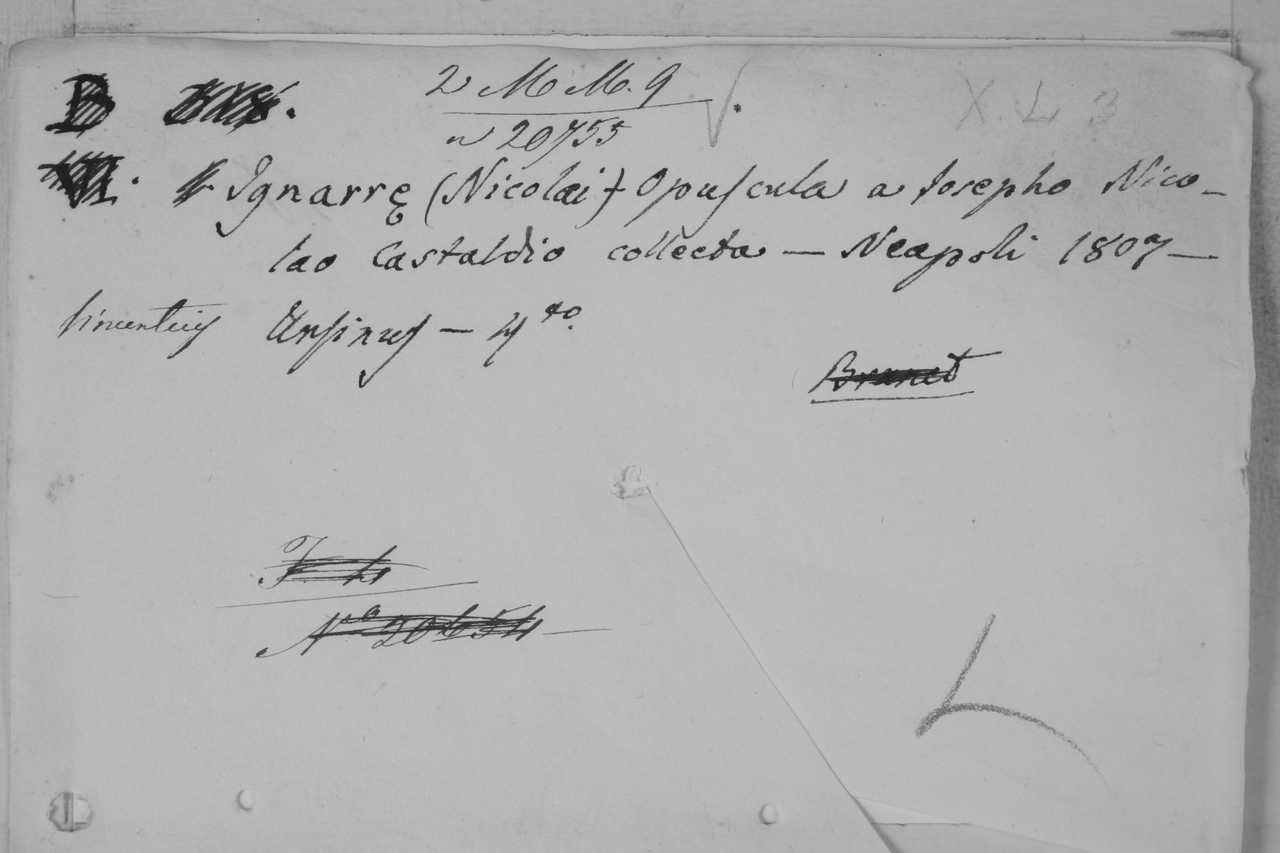 B
2 M M. 9
n 20755
X. L 3
Ignarrę (Nicolai) Opuscula a Josepho Nico-
lao Castaldio collecta — Neapoli 1807 —
Vincentius Ursinus — 4to.
Brunet
L